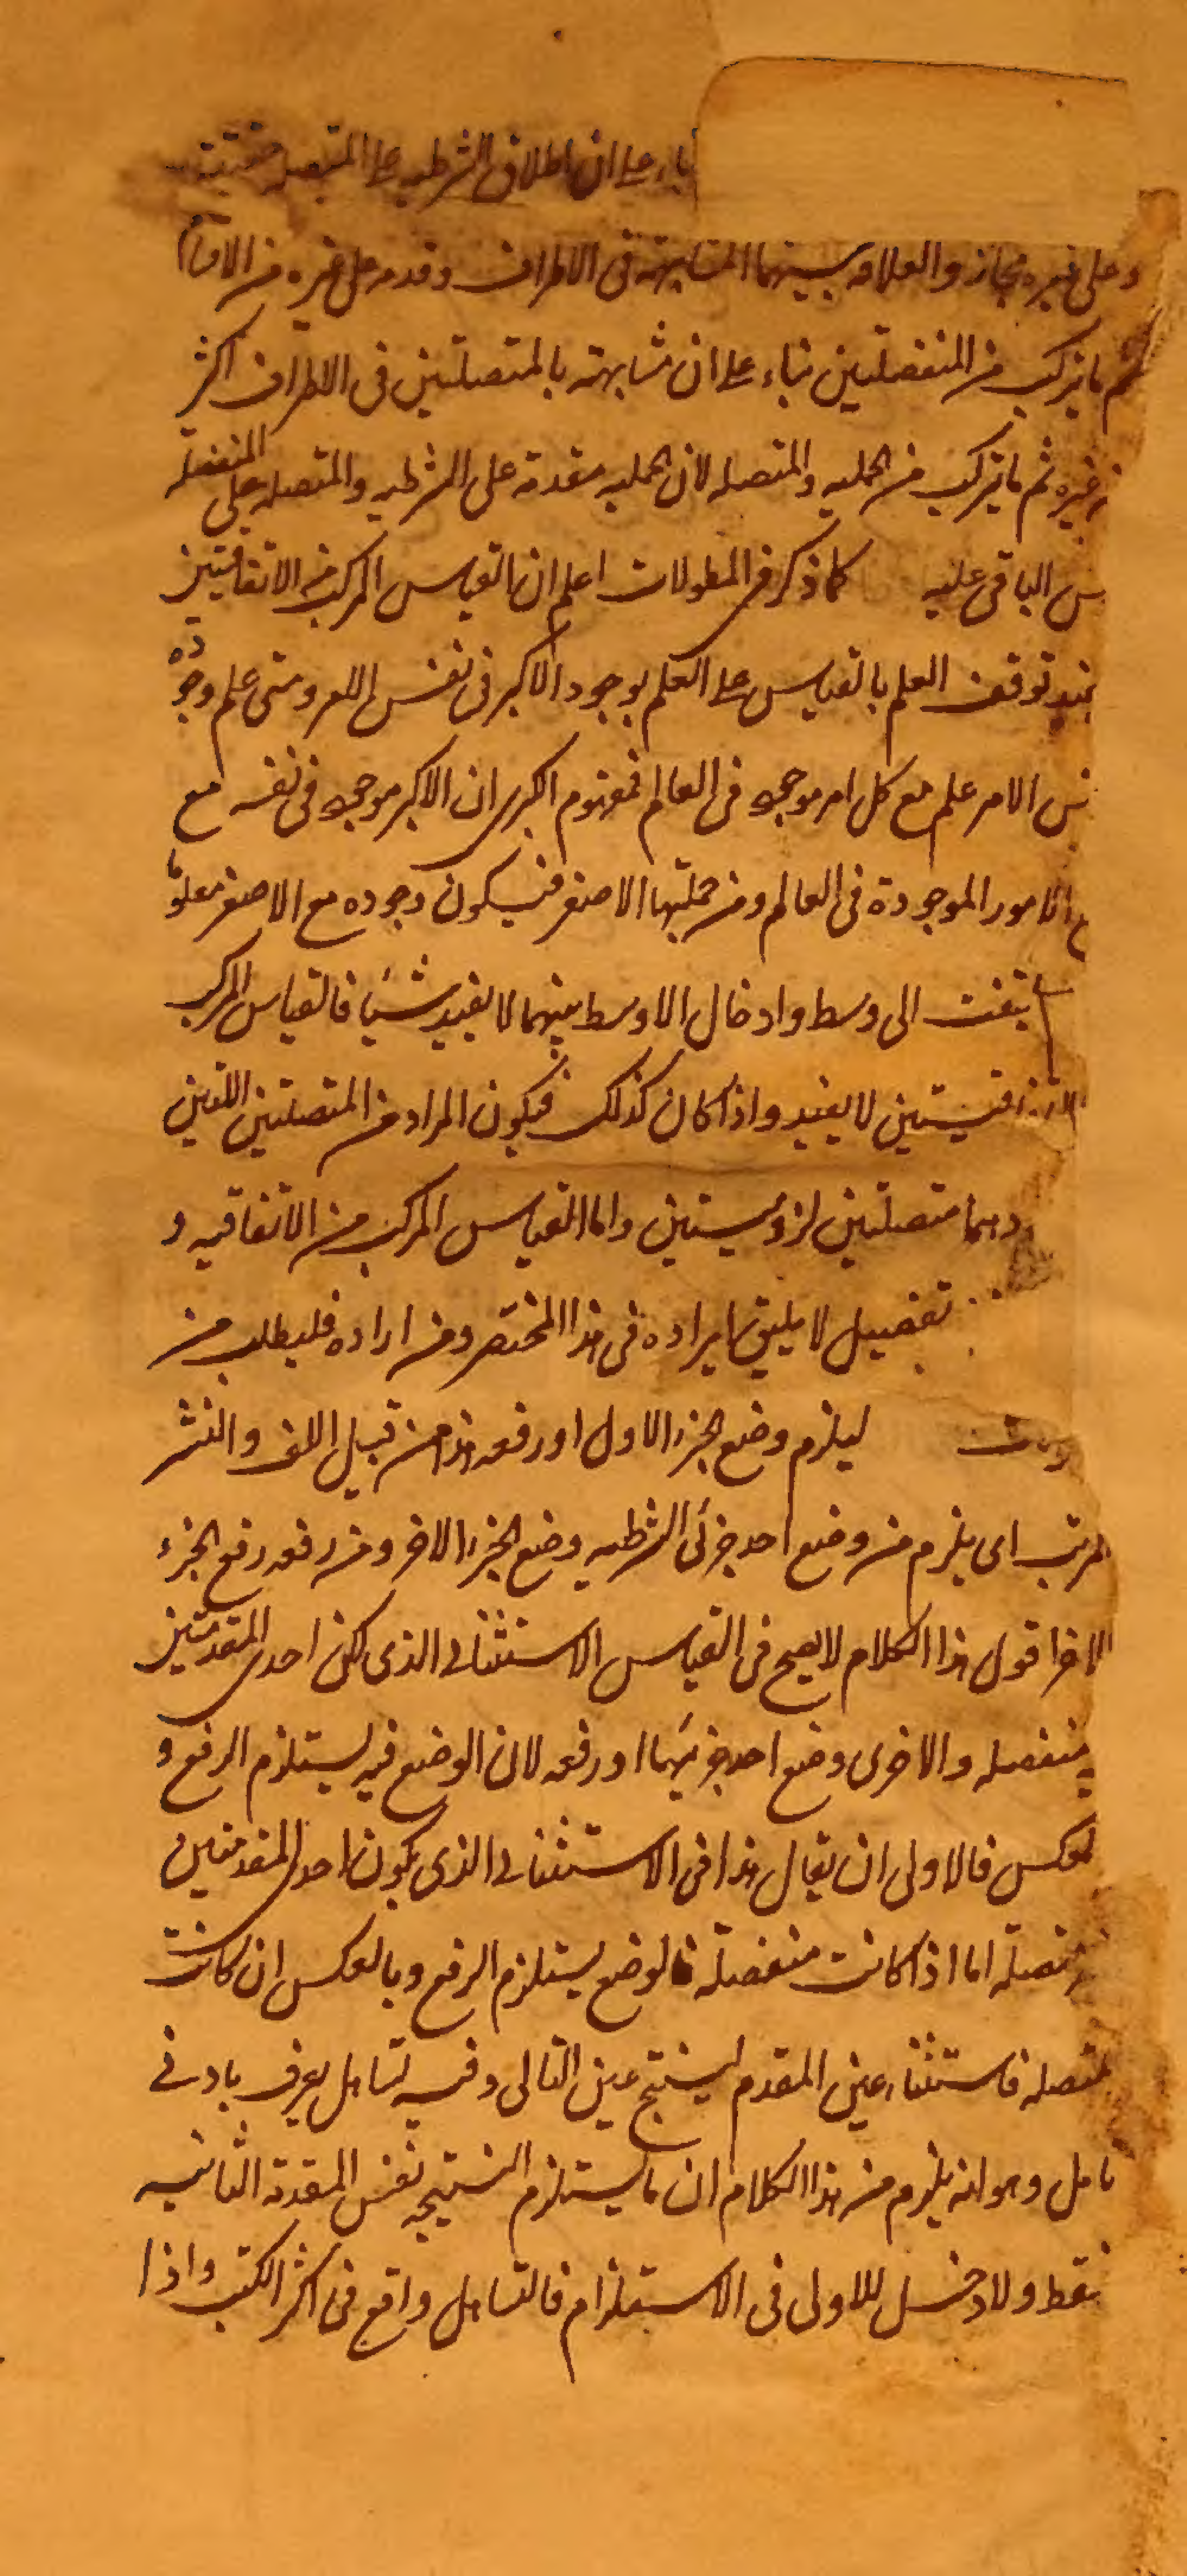 بناء على ان اطلاق الشرطيه على المتصله حقيقة
وعلى غيره مجاز والعلاقه بينهما المشابهة فى الاطراف وقدمه على غيره من الاقسام
ثم ما يتركب من المنفصلتين بناء على ان مشابهته بالمتصلتين فى الاطراف اكثر
من غيره ثم ما يتركب من الحمليه والمتصله لان الحمليه مقدمة على الشرطيه والمتصله على المنفصله
س الباقى عليه كما ذكر فى المطولات اعلم ان القياس المركب من الاتفاقيتين
يفيد توقف العلم بالقياس على العلم بوجود الاكبر فى نفس الامر ومتى علم وجوده
نفس الامر علم مع كل امر موجود فى العالم فمفهوم الكبرى ان الاكبر موجود فى نفسه مع
الامور الموجودة فى العالم ومن جملتها الاصغر فيكون وجوده مع الاصغر معلوما
يلتفت الى وسط وادخال الاوسط بينهما لا يفيد شيئا فالقياس المركب
الاتفاقيتين لا يفيد واذا كان كذلك فيكون المراد من المتصلتين اللتين
وهما متصلتين لزوميتين واما القياس المركب من الاتفاقيه و
تفصيل لا يليق ايراده فى هذا المختصر ومن اراده فليطلب من
ليلزم وضع الجزء الاول او رفعه هذا من قبيل اللف والنشر
المرتب اى يلزم من وضع احد جزئى الشرطيه وضع الجزء الاخر ومن رفعه رفع الجزء
الاخر اقول هذا الكلام لا يصح فى القياس الاستثنائى الذى يكون احدى المقدمتين
منفصله والاخرى وضع احد جزئيها او رفعه لان الوضع فيه يستلزم الرفع و
بالعكس فالاولى ان يقال هذا فى الاستثنائى الذى يكون احد المقدمتين
متصلة اما اذا كانت منفصلة فالوضع يستلزم الرفع وبالعكس ان كانت
متصله فاستثناء عين المقدم ينتج عين التالى وفيه تساهل يعرف بادنى
تامل وهو انه يلزم من هذا الكلام ان ما يستلزم النتيجه نفس المقدمة الثانيه
فقط ولا دخل للاولى فى الاستلزام فالتساهل واقع فى اكثر الكتب واذا